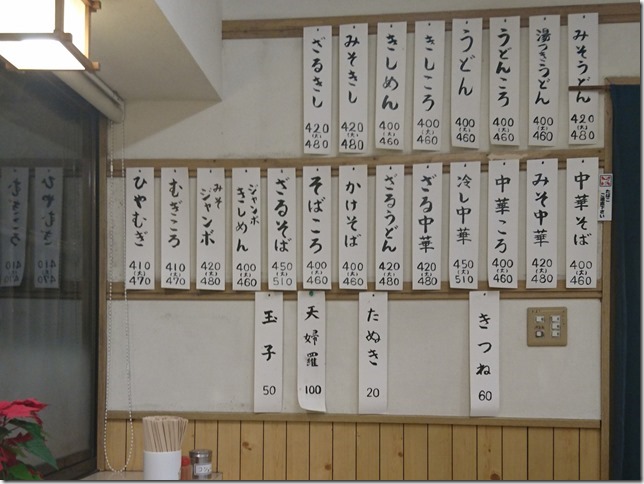 みそうどん 420 (大)480
湯つきうどん 400 (大)460
うどんころ 400 (大)460
うどん 400 (大)460
きしころ 400 (大)460
きしめん 400 (大)460
みそきし 420 (大)480
ざるきし 420 (大)480
中華そば 400 (大)460
みそ中華 420 (大)480
中華ころ 400 (大)460
冷し中華 450 (大)510
ざる中華 420 (大)480
ざるうどん 420 (大)480
かけそば 400 (大)460
そばころ 400 (大)460
ざるそば 450 (大)510
ジャンボきしめん 400 (大)460
みそジャンボ 420 (大)480
むぎころ 410 (大)470
ひやむぎ 410 (大)470
きつね 60
たぬき 20
天婦羅 100
玉子 50